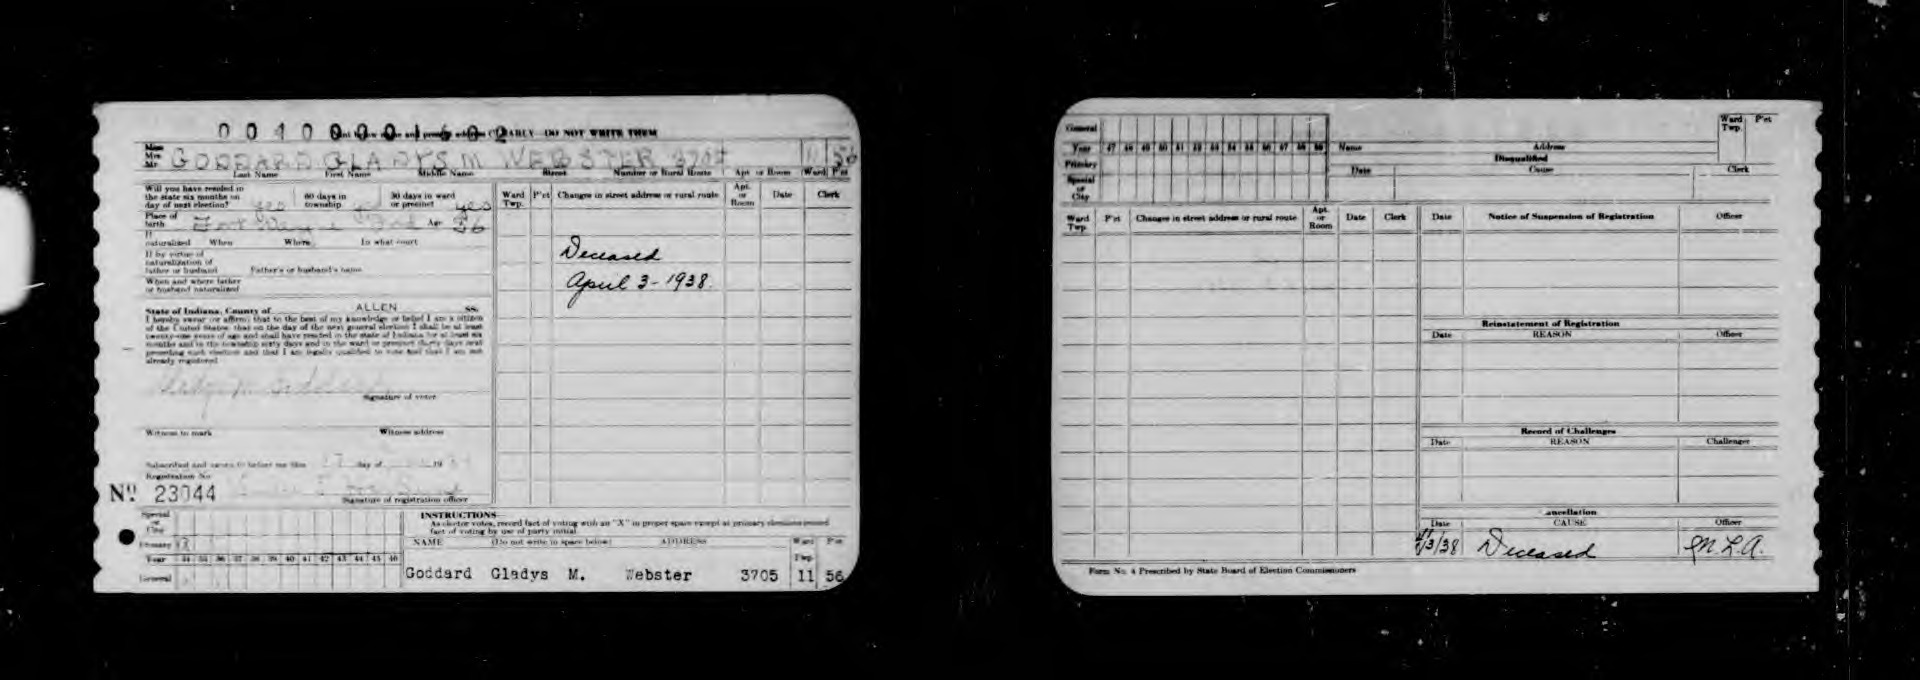 0 0 4 0 0 0 0 1 6 0 2
CLEARLY—DO NOT WRITE THEM
Miss
Mrs.
Mr.
GODDARD GLADYS M WEBSTER 11 56
Last Name First Name Middle Name Street Number or Rural Route Apt. or Room Ward P'ct
Will you have resided in
the state six months on
day of next election? yes
60 days in
township
30 days in ward
or precinct yes
Place of
birth Fort Wayne Age
If
naturalized When Where In what court
If by virtue of
naturalization of
father or husband Father's or husband's name
When and where father
or husband naturalized
State of Indiana, County of ALLEN SS.
I hereby swear (or affirm) that to the best of my knowledge or belief I am a citizen
of the United States; that on the day of the next general election I shall be at least
twenty-one years of age and shall have resided in the state of Indiana for at least six
months and in the township sixty days and in the ward or precinct thirty days next
preceding such election and that I am legally qualified to vote and that I am not
already registered.
Signature of voter
Witness to mark Witness address
Subscribed and sworn to before me this day of 19
Registration No.
No. 23044
Signature of registration officer
Ward
Twp. P'ct Changes in street address or rural route Apt.
or
Room Date Clerk
Deceased
April 3-1938.
Special
or
City
Primary
Year 34 35 36 37 38 39 40 41 42 43 44 45 46
General
INSTRUCTIONS
As elector votes, record fact of voting with an "X" in proper space except at primary elections record
fact of voting by use of party initial.
NAME (Do not write in space below) ADDRESS Ward
Twp. P'ct
Goddard Gladys M. Webster 3705 11 56
General
Year 47 48 49 50 51 52 53 54 55 56 57 58 59
Primary
Special
or
City
Name Address
Ward
Twp. P'ct
Disqualified
Date Cause Clerk
Ward
Twp. P'ct Changes in street address or rural route Apt.
or
Room Date Clerk
Date Notice of Suspension of Registration Officer
Reinstatement of Registration
Date REASON Officer
Record of Challenges
Date REASON Challenger
Cancellation
Date CAUSE Officer
/3/38 Deceased M.L.A.
Form No. 4 Prescribed by State Board of Election Commissioners